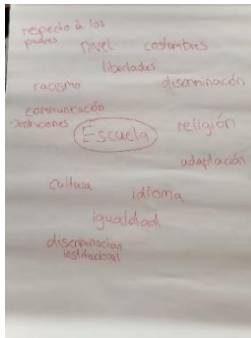 respecto à los
padres
nivel
costumbres
libertades
racismo
discriminación
communicacão
religión
Escuela
adaptación
cultura
idioma
igualdad
discriminacion
institucional